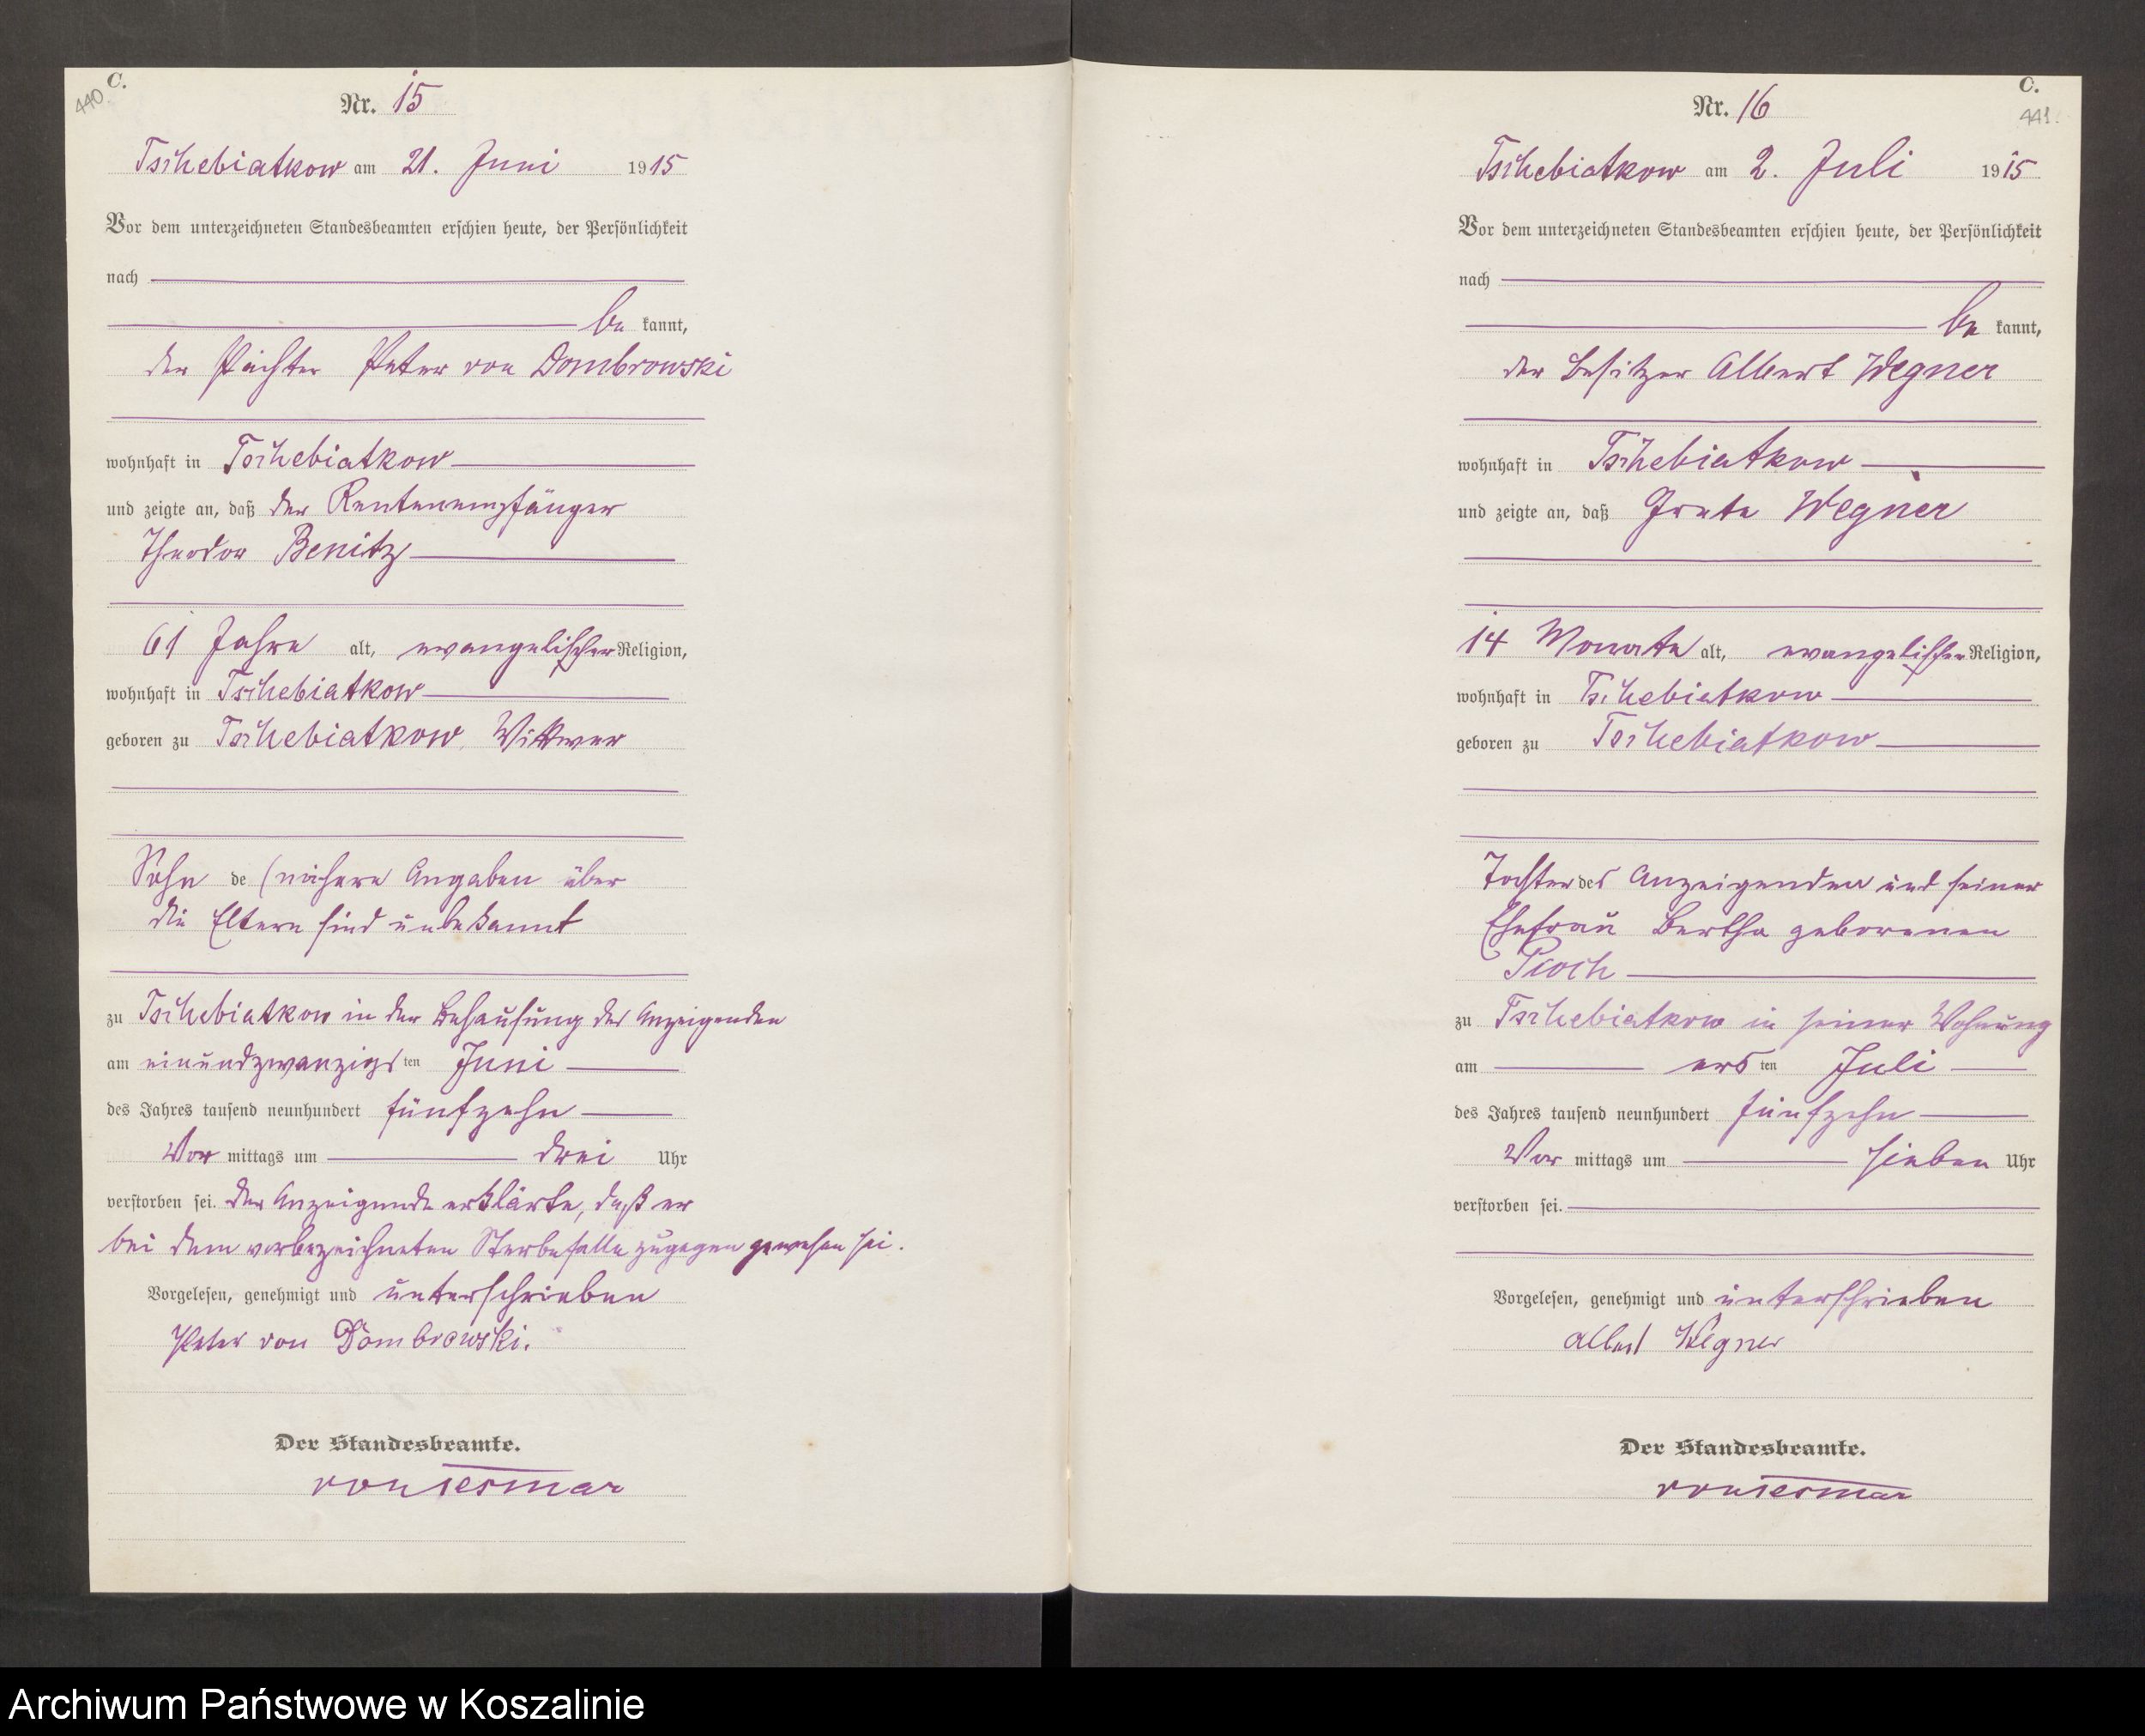 440 C.
Nr. 15
Tschebiatkow am 21. Juni 1915
Vor dem unterzeichneten Standesbeamten erschien heute, der Persönlichkeit
nach
be kannt,
der Pächter Peter von Dombrowski
wohnhaft in Tschebiatkow
und zeigte an, daß der Rentenempfänger
Theodor Benitz
61 Jahre alt, evangelischer Religion,
wohnhaft in Tschebiatkow
geboren zu Tschebiatkow, Wittwer
Sohn de (nähere Angaben über
die Eltern sind unbekannt
zu Tschebiatkow in der Behausung des Anzeigenden
am einundzwanzigsten Juni
des Jahres tausend neunhundert fünfzehn
Vor mittags um drei Uhr
verstorben sei. Der Anzeigende erklärte, daß er
bei dem vorbezeichneten Sterbefalle zugegen gewesen sei.
Vorgelesen, genehmigt und unterschrieben
Peter von Dombrowski.
Der Standesbeamte.
von Tesmar
C.
441.
Nr. 16
Tschebiatkow am 2. Juli 1915
Vor dem unterzeichneten Standesbeamten erschien heute, der Persönlichkeit
nach
be kannt,
der Besitzer Albert Wegner
wohnhaft in Tschebiatkow
und zeigte an, daß Grete Wegner
14 Monate alt, evangelischer Religion,
wohnhaft in Tschebiatkow
geboren zu Tschebiatkow
Tochter des Anzeigenden und seiner
Ehefrau Bertha geborenen
Pioch
zu Tschebiatkow in seiner Wohnung
am ersten Juli
des Jahres tausend neunhundert fünfzehn
Vor mittags um sieben Uhr
verstorben sei.
Vorgelesen, genehmigt und unterschrieben
Albert Wegner
Der Standesbeamte.
von Tesmar
Archiwum Państwowe w Koszalinie